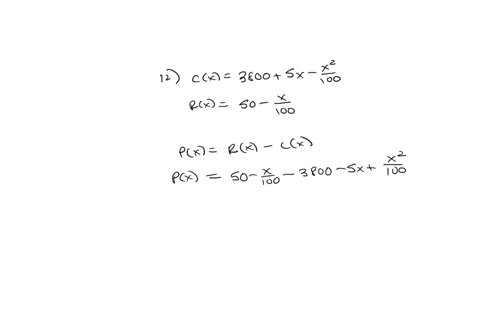 12) C(x) = 3800 + 5x - x²/100
R(x) = 50 - x/100
P(x) = R(x) - C(x)
P(x) = 50 - x/100 - 3800 - 5x + x²/100